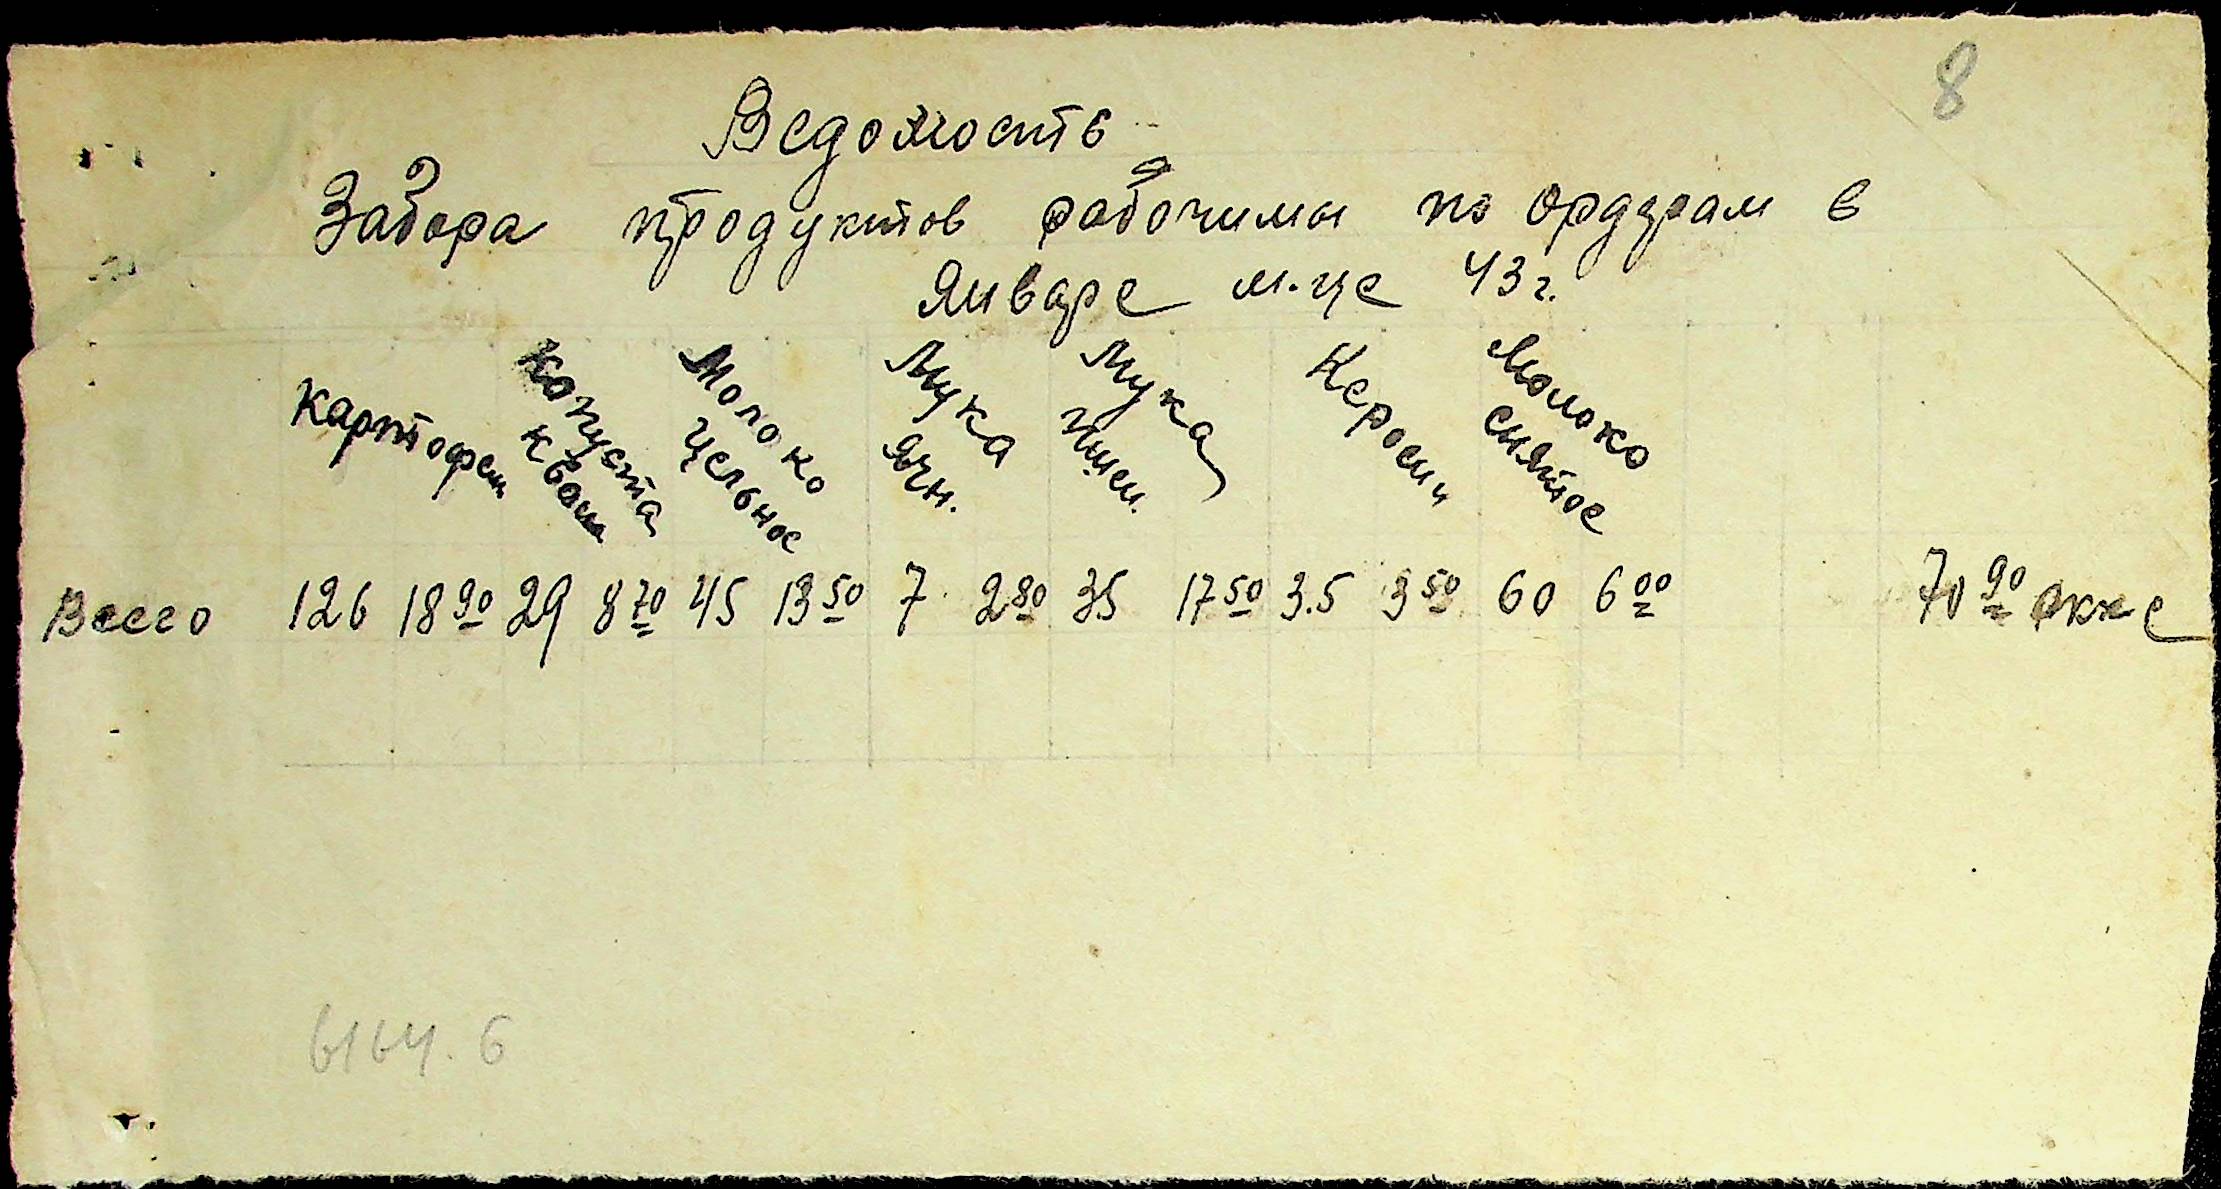 8
Ведомость
Забора продуктов рабочими по ордерам в
Январе м-це 43 г.
Картофель Капуста кваш Молоко цельное Мука ячн. Мука пшен. Керосин Молоко снятое
Всего 126 18 90 29 8 70 45 13 50 7 2 80 35 17 50 3.5 3 50 60 6 00 70 90